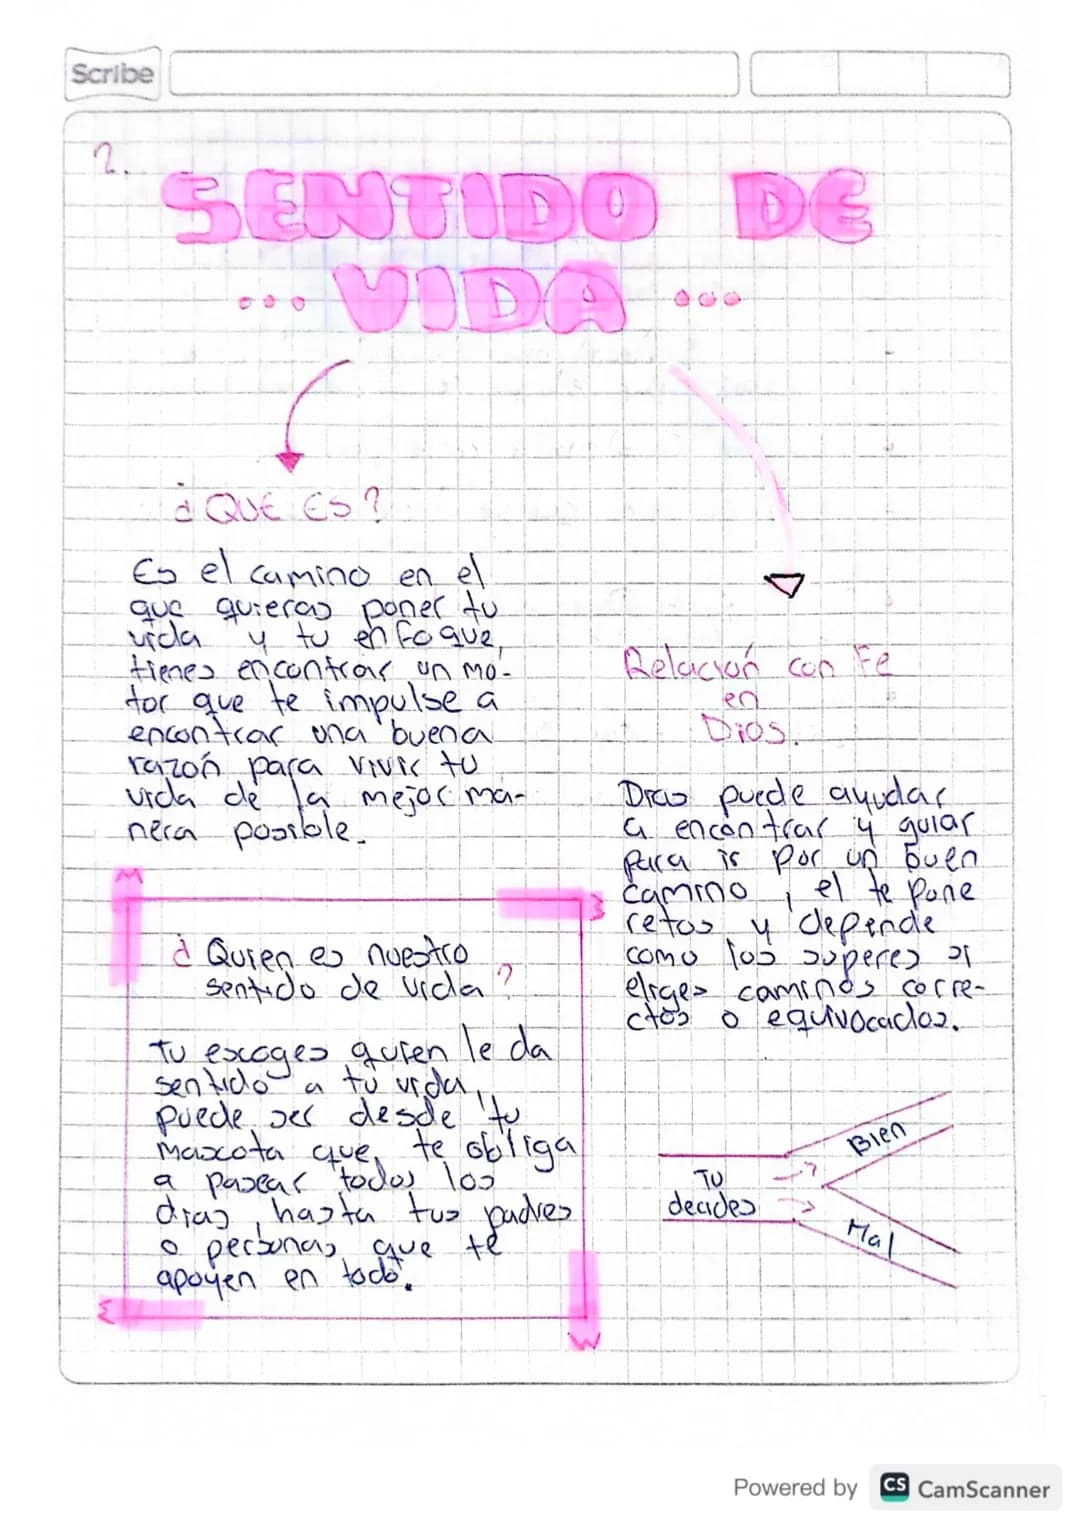 Scribe
2.
SENTIDO DE
VIDA
¿QUE ES?
Es el camino en el
que quieras poner tu
vida y tu enfoque,
tienes encontrar un mo-
tor que te impulse a
encontrar una buena
razoń para vivir tu
vida de la mejor ma-
nera posible.
¿Quien es nuestro
sentido de vida?
Tu escoges quien le da
sentido a tu vida,
puede ser desde tu
mascota que te obliga
a pasear todos los
dias, hasta tus padres
o personas que te
apoyen en todo.
Relación con Fe
en
Dios.
Dios puede ayudar
a encontrar y guiar
para ir por un buen
camino, el te pone
retos y depende
como los superes si
eliges caminos corre-
ctos o equivocados.
Tu
decides
Bien
Mal
Powered by CS CamScanner